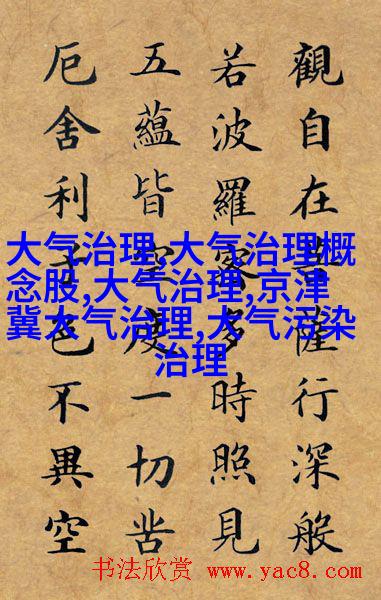 觀自在菩薩行深般
若波羅蜜多時照見
五蘊皆空度一切苦
厄舍利子色不異空
大气治理,大气治理概
念股,大气治理,京津
冀大气治理,大气污染
治理
书法欣赏 www.yac8.com